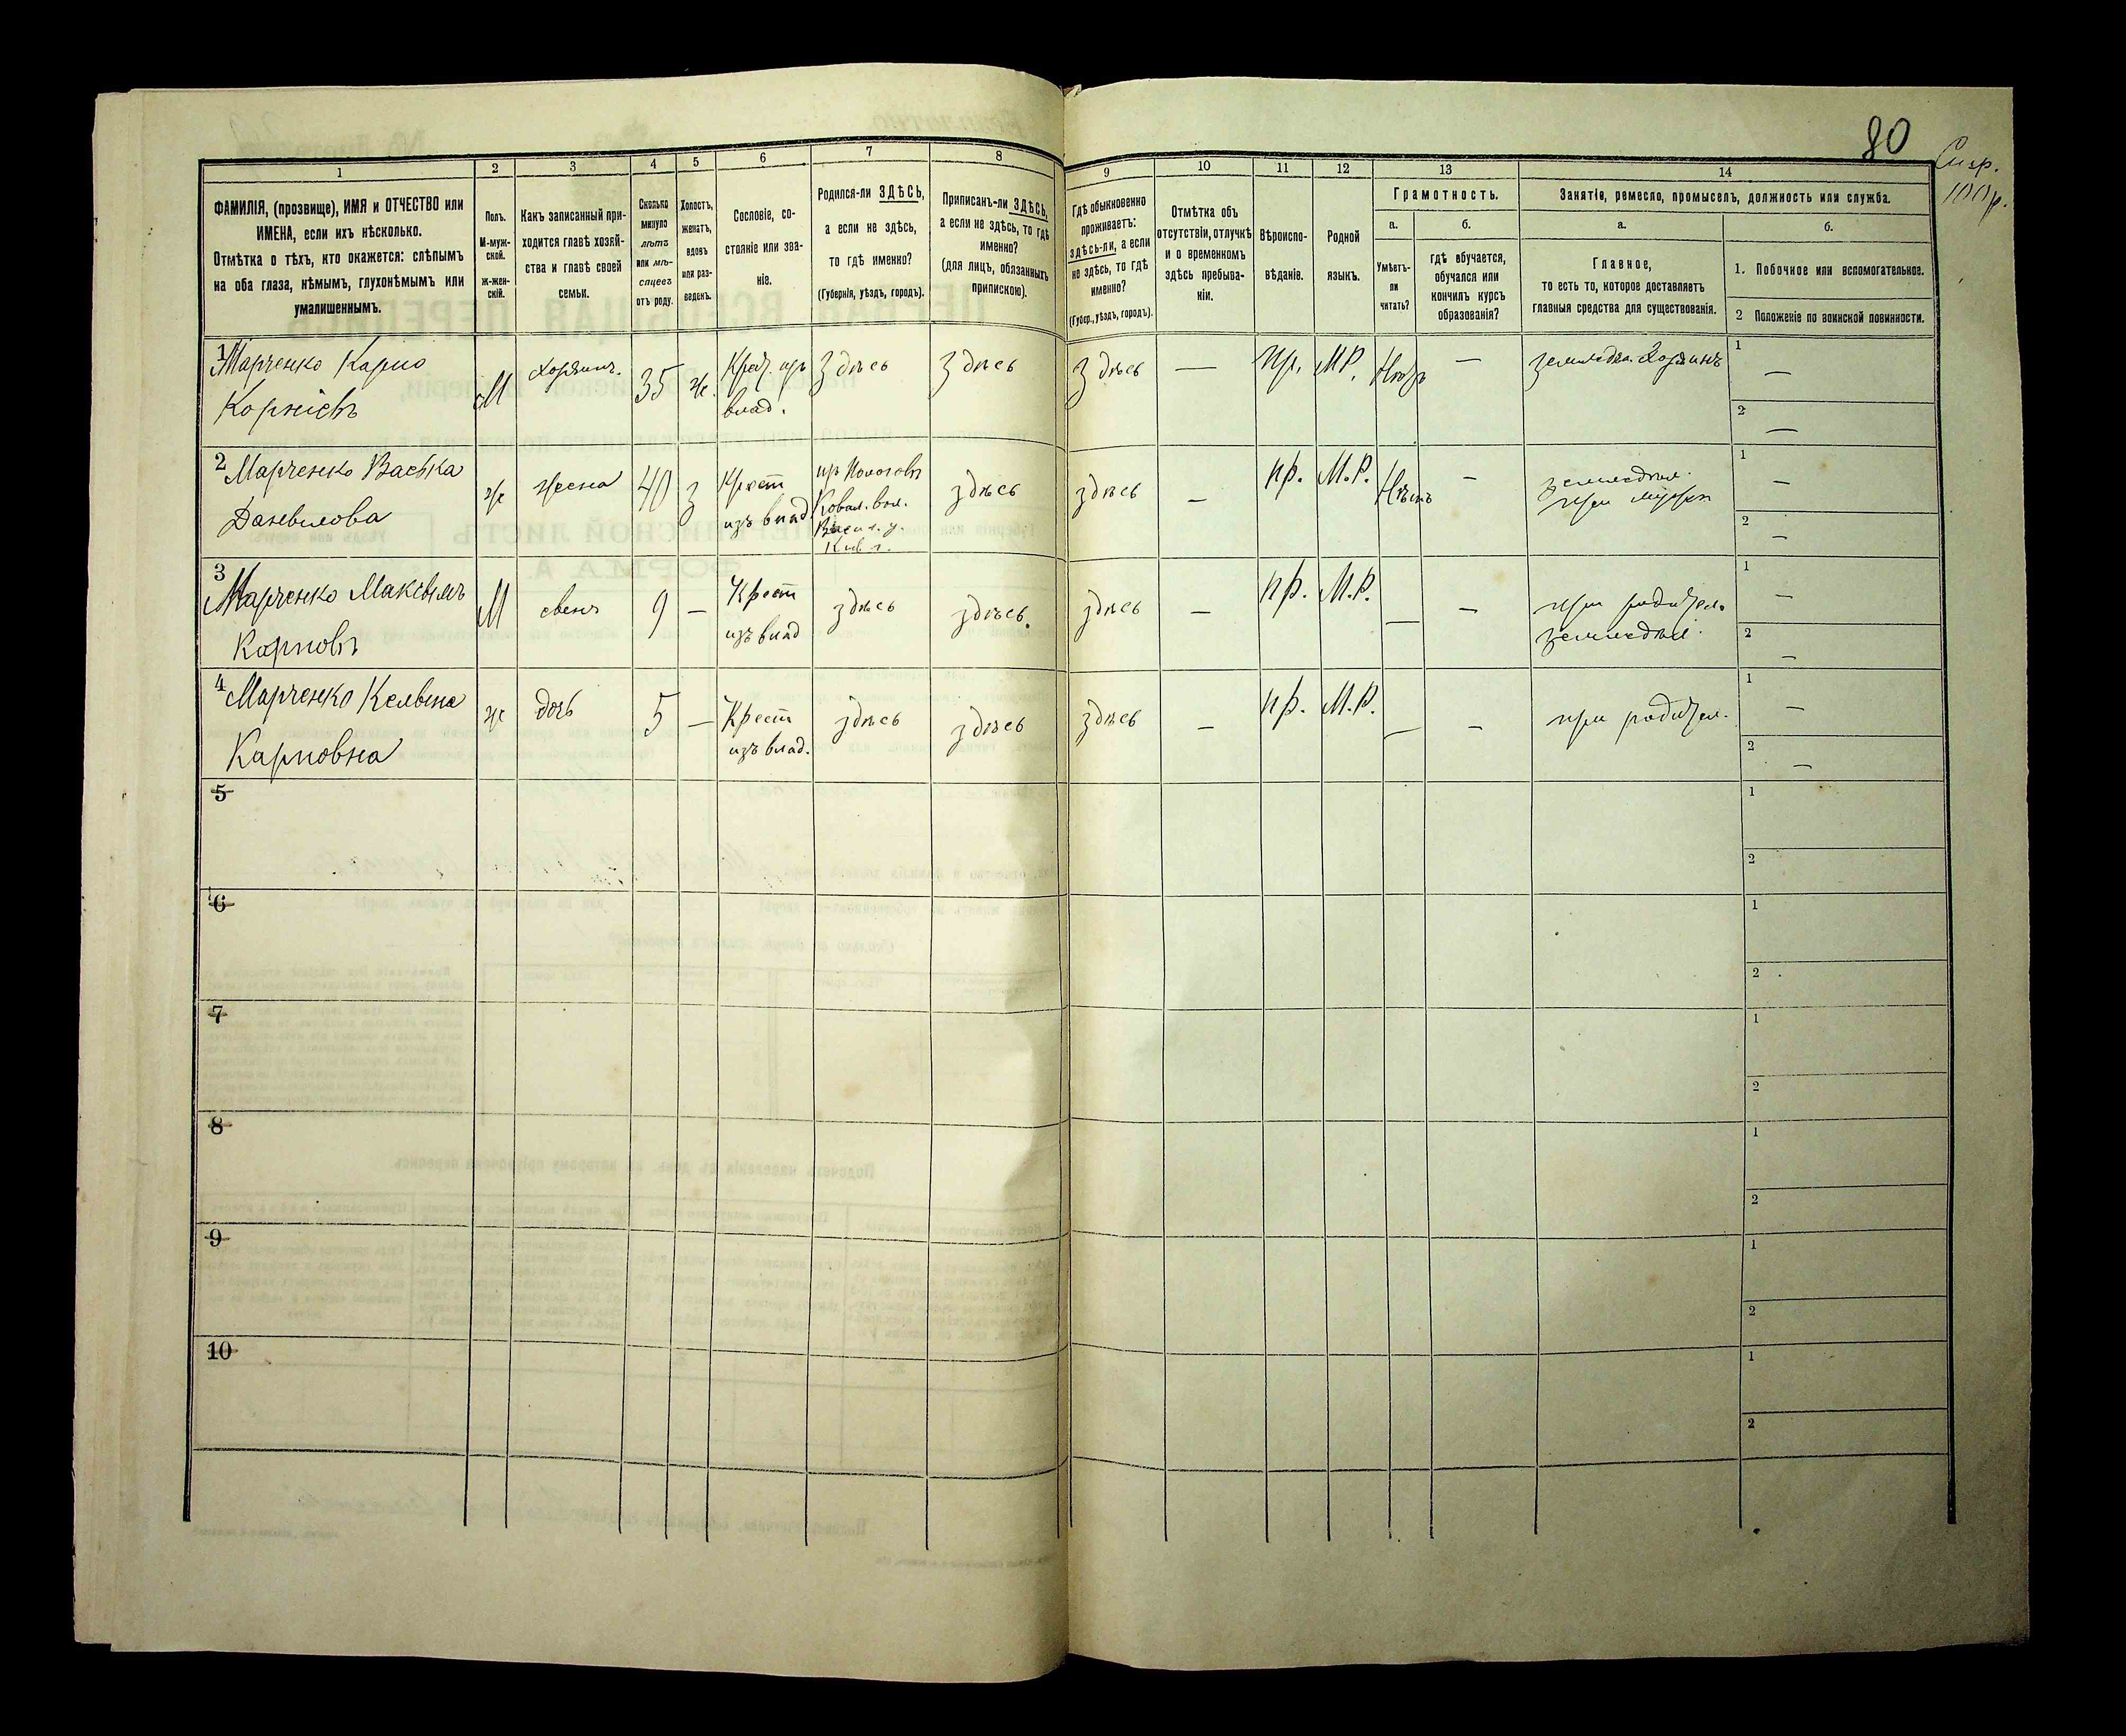 80
1
2
3
4
5
6
7
8
9
10
11
12
13
14
ФАМИЛІЯ, (прозвище), ИМЯ и ОТЧЕСТВО или
ИМЕНА, если ихъ нѣсколько.
Отмѣтка о тѣхъ, кто окажется: слѣпымъ
на оба глаза, нѣмымъ, глухонѣмымъ или
умалишеннымъ.
Полъ.
М-муж-
ской.
ж-жен-
скій.
Какъ записанный при-
ходится главѣ хозяй-
ства и главѣ своей
семьи.
Сколько
минуло
лѣтъ
или мѣ-
сяцевъ
отъ роду.
Холостъ,
женатъ,
вдовъ
или раз-
веденъ.
Сословіе, со-
стояніе или зва-
ніе.
Родился-ли ЗДѢСЬ,
а если не здѣсь,
то гдѣ именно?
(Губернія, уѣздъ, городъ).
Приписанъ-ли ЗДѢСЬ,
а если не здѣсь, то гдѣ
именно?
(для лицъ, обязанныхъ
припискою).
Гдѣ обыкновенно
проживаетъ:
здѣсь-ли, а если
не здѣсь, то гдѣ
именно?
(Губер., уѣздъ, городъ).
Отмѣтка объ
отсутствіи, отлучкѣ
и о временномъ
здѣсь пребыва-
ніи.
Вѣроиспо-
вѣданіе.
Родной
языкъ.
Грамотность.
а.
б.
Умѣетъ-
ли
читать?
гдѣ обучается,
обучался или
кончилъ курсъ
образованія?
Занятіе, ремесло, промыселъ, должность или служба.
а.
б.
Главное,
то есть то, которое доставляетъ
главныя средства для существованія.
1. Побочное или вспомогательное.
2 Положеніе по воинской повинности.
1 Марченко Карпо
Корніевъ
М
хозяинъ.
35
ж.
влад.
здѣсь
здѣсь
здѣсь
—
пр.
М.Р.
—
1 —
2 —
2 Марченко
Данилова
ж
жена
40
з
Крест
изъ влад
здѣсь
здѣсь
—
пр.
М.Р.
Нѣтъ
—
землед
при мужѣ
1 —
2 —
3 Марченко Максимъ
Карповъ
М
сынъ
9
—
Крест
изъ влад
здѣсь
здѣсь.
здѣсь
—
пр.
М.Р.
—
—
при родител.
1 —
2 —
4 Марченко
Карповна
ж
дочь
5
—
Крест
изъ влад.
здѣсь
здѣсь
здѣсь
—
пр.
М.Р.
—
—
при родител.
1 —
2 —
5
1
2
6
1
2
7
1
2
8
1
2
9
1
2
10
1
2